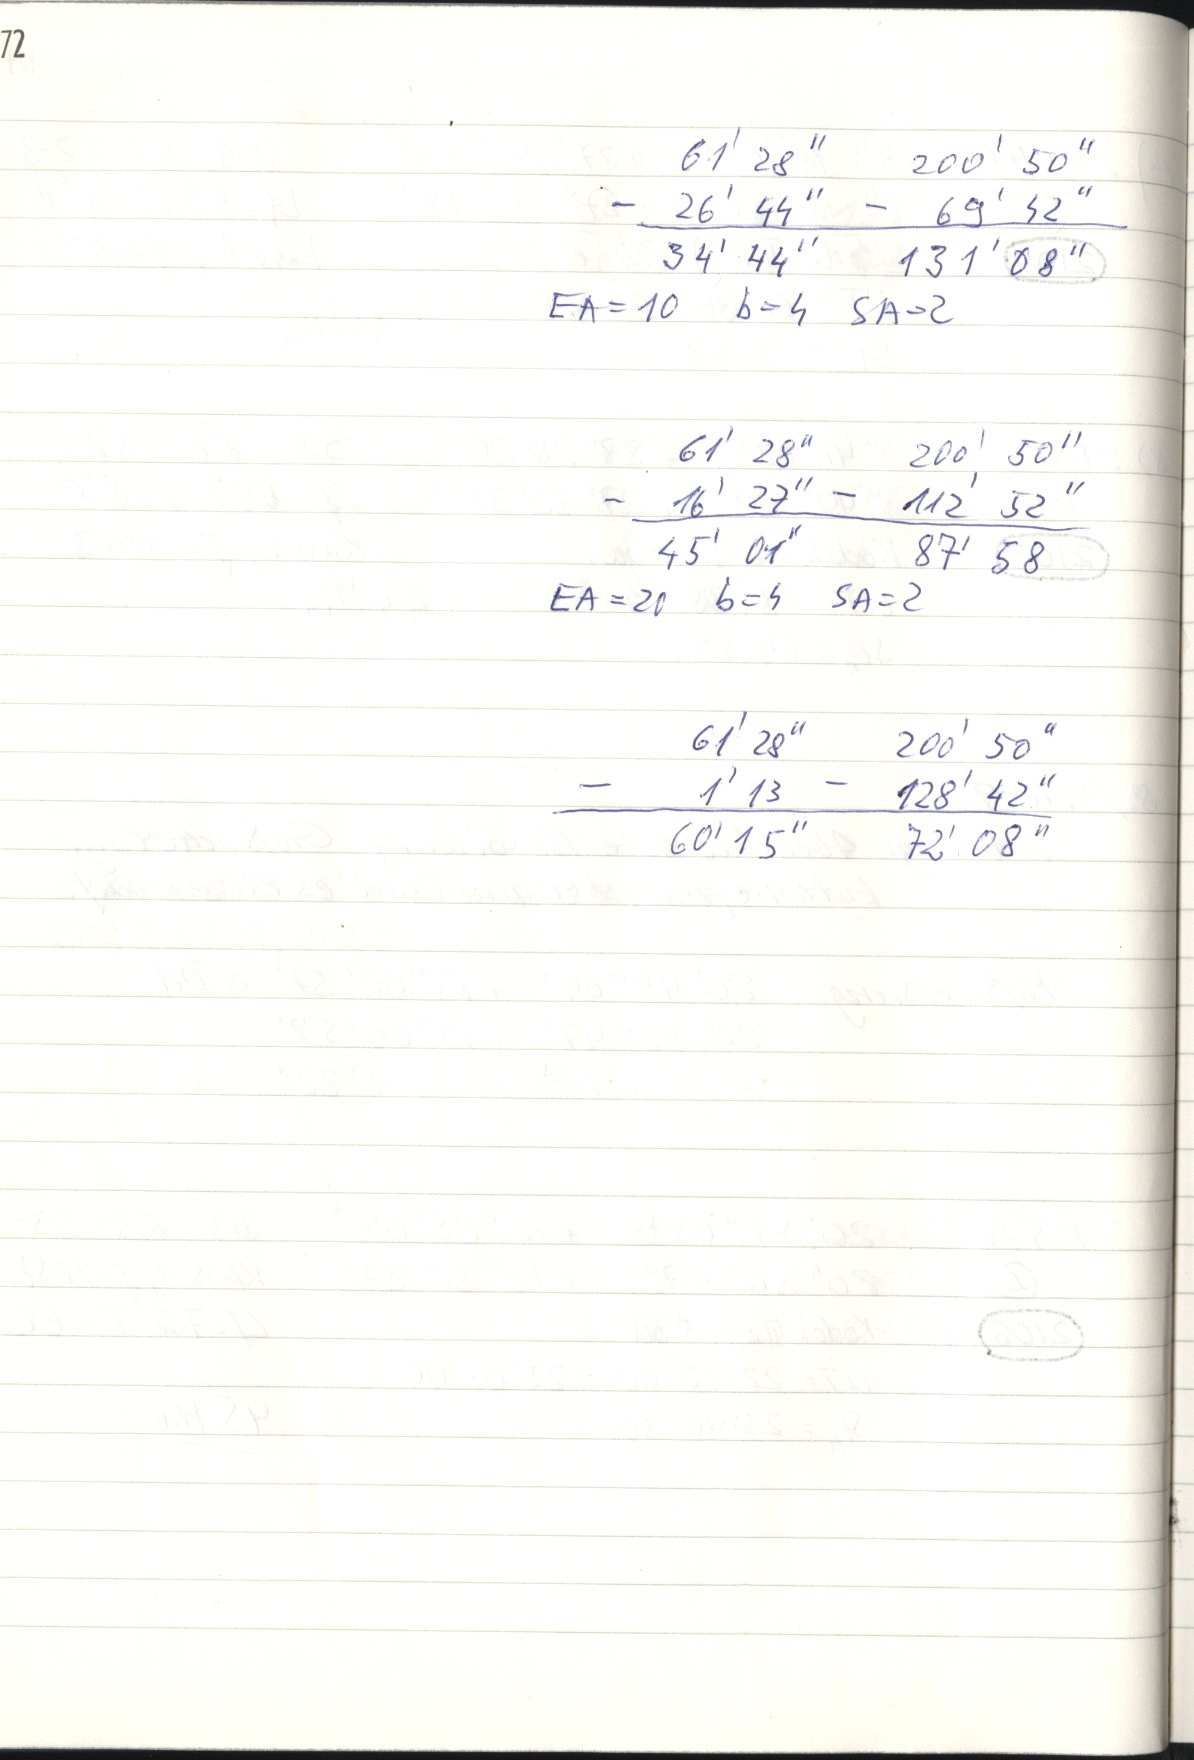 72
61' 28" 200' 50"
- 26' 44" - 69' 42"
34' 44" 131' 08"
EA=10 b=4 SA=2
61' 28" 200' 50"
- 16' 27" - 112' 52"
45' 01" 87' 58
EA=20 b=4 SA=2
61' 28" 200' 50"
- 1' 13 - 128' 42"
60' 15" 72' 08"